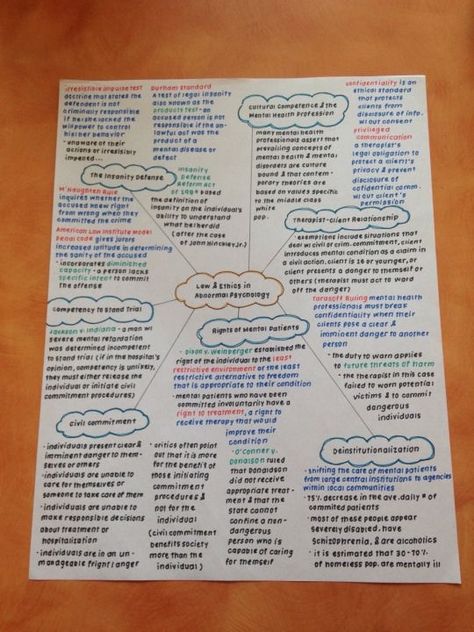 irresistible impulse test
doctrine that states the
defendent is not
criminally responsible
if he/she lacked the
willpower to control
his/her behavior
- unaware of their
actions or irresistibly
impaired...
Durham Standard
A test of legal insanity
also known as the
products test - an
accused person is not
responsible if the un-
lawful act was the
product of a
mental disease or
defect
Cultural Competence & the
Mental Health Profession
many mental health
professionals assert that
prevailing concepts of
mental health & mental
disorders are culture
bound & that contem-
porary theories are
based on values specific
to the middle class
white
pop.
confidentiality is an
ethical standard
that protects
clients from
disclosure of info.
w/our consent
Privileged
communication
a therapist's
legal obligation to
protect a client's
privacy & prevent
disclosure of
cofidential comm.
w/out client's
permission
The Insanity Defense
Insanity
Defense
Reform Act
of 1984 based
the definition of
insanity on the individual's
ability to understand
what he/she did
(after the case
of John Hinckley Jr.)
M'Naughten Rule
inquires whether the
accused knew right
from wrong when they
committed the crime
American Law Institute Model
Penal code gives jurors
increased latitude in determining
the sanity of the accused
- incorporates diminished
capacity - a person lacks
specific intent to commit
the offense
Therapist-Client Relationship
- exemptions include situations that
deal w/ civil or crim. commitment, client
introduces mental condition as a claim in
a civil action, client is 16 or younger, or
client presents a danger to themself or
others (therapists must act to ward
off the danger)
Law & Ethics in
Abnormal Psychology
Tarasoff Ruling mental health
professionals must break
confidentiality when their
clients pose a clear &
imminent danger to another
person
- the duty to warn applies
to future threats of harm
- the therapist in this case
failed to warn potential
victims & to commit
dangerous
individuals
Competency to Stand Trial
Jackson v. Indiana - a man w/
severe mental retardation
was determined incompetent
to stand trial (if in the hospital's
opinion, competency is unlikely,
they must either release the
individual or initiate civil
commitment procedures)
Rights of Mental Patients
- Dixon v. Weinberger established the
right of the individual to the least
restrictive environment or the least
restrictive alternative to freedom
that is appropriate to their condition
- mental patients who have been
committed involuntarily have a
right to treatment, a right to
receive therapy that would
improve their
condition
- O'Conner v.
Donaldson ruled
that Donaldson
did not receive
appropriate treat-
ment & that the
state cannot
confine a non-
dangerous
person who is
capable of caring
for themself
Civil Commitment
- individuals present clear &
imminent danger to them-
selves or others
- individuals are unable to
care for themselves or
someone to take care of them
- individuals are unable to
make responsible decisions
about treatment or
hospitalization
- individuals are in an un-
manageable fright/anger
- critics often point
out that it is more
for the benefit of
those initiating
commitment
procedures &
not for the
individual
(civil commitment
benefits society
more than the
individual)
Deinstitutionalization
- shifting the care of mental patients
from large central institutions to agencies
within local communities
- 75% decrease in the ave. daily # of
commited patients
- most of these people appear
severely disabled, have
schizophrenia, & are alcoholics
- it is estimated that 30-70%
of homeless pop. are mentally ill